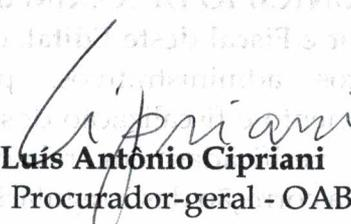 Cipriani
Luís Antônio Cipriani
Procurador-geral - OAB